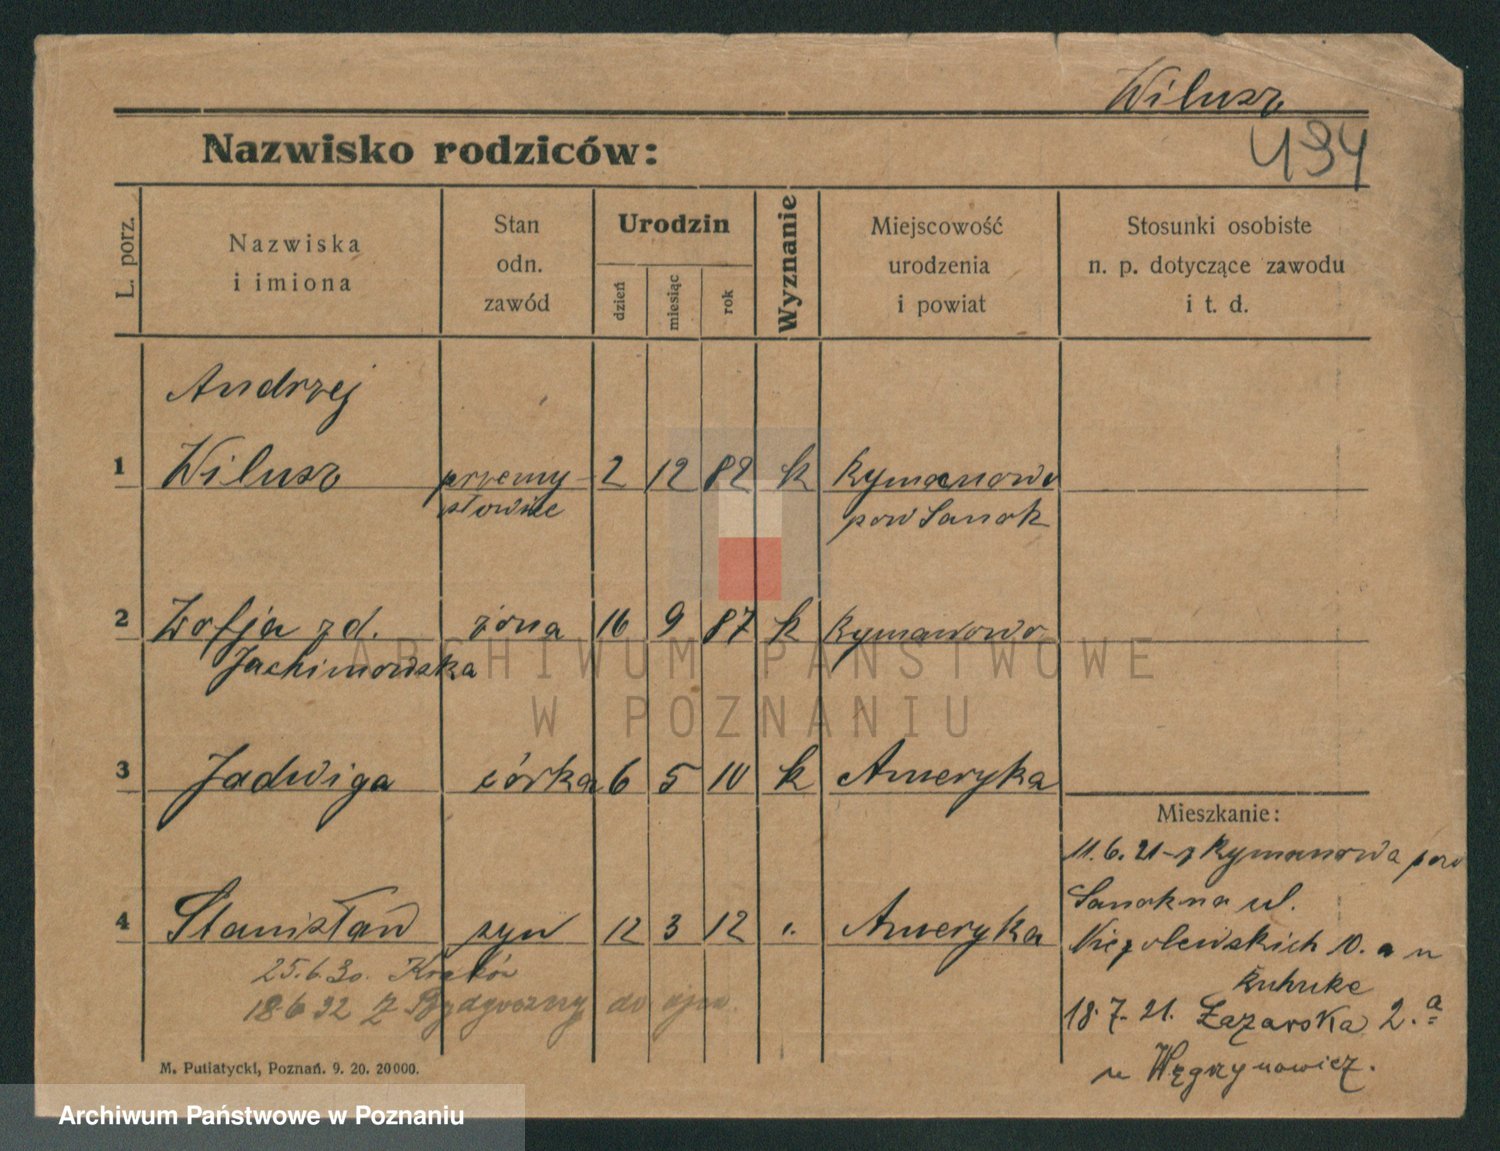 Wilusz
494
Nazwisko rodziców:
L. porz.
Nazwiska
i imiona
Stan
odn.
zawód
Urodzin
dzień
miesiąc
rok
Wyznanie
Miejscowość
urodzenia
i powiat
Stosunki osobiste
n. p. dotyczące zawodu
i t. d.
Andrzej
1 Wilusz przemy- 2 12 82 k Rymanowo
słowiec pow Sanok
2 Zofja zd. żona 16 9 87 k Rymanowo
Jachimowska
3 Jadwiga córka 6 5 10 k Ameryka
Mieszkanie:
11.6.21 z Rymanowa pow
Sanok na ul.
Niegolewskich 10. u
18.7.21. Łazarska 2.a
u Węgrzynowicz.
4 Stanisław syn 12 3 12 Ameryka
25.6.30. Kraków
18.6.32 z Bydgoszczy do ojca
M. Putiatycki, Poznań. 9. 20. 20000.
ARCHIWUM PAŃSTWOWE
W POZNANIU
Archiwum Państwowe w Poznaniu